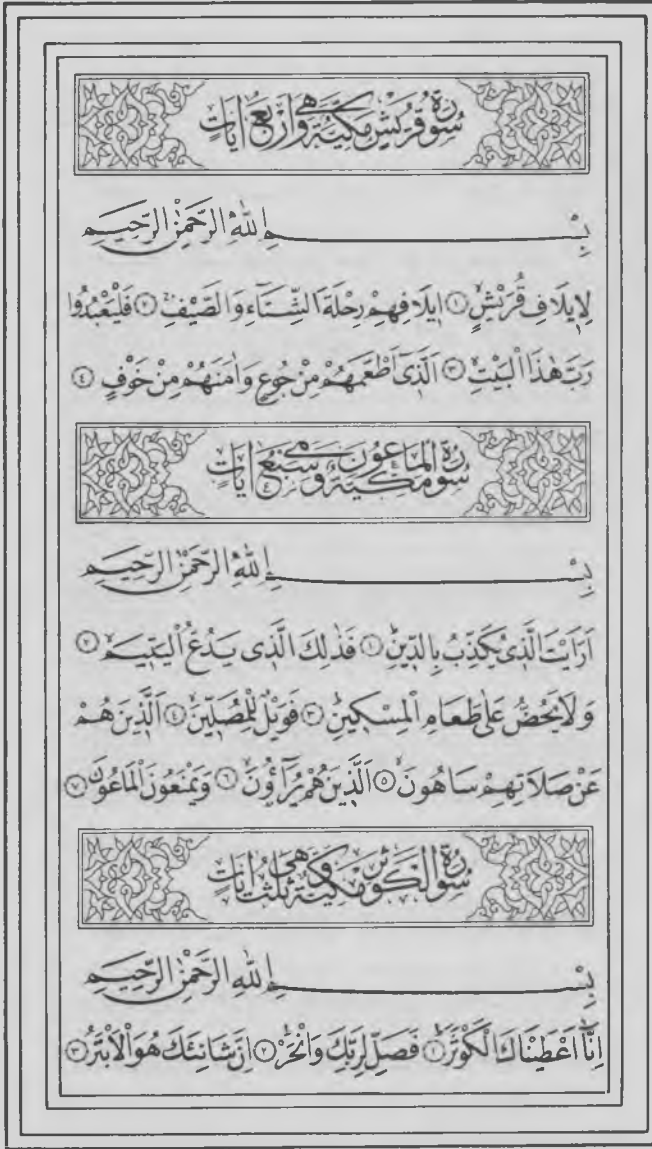 سورة قريش مكية وهي اربع ايات
بِسْمِ اللّٰهِ الرَّحْمٰنِ الرَّحِيمِ
لِاِيلَافِ قُرَيْشٍ ﴿١﴾ اِيلَافِهِمْ رِحْلَةَ الشِّتَٓاءِ وَالصَّيْفِ ﴿٢﴾ فَلْيَعْبُدُوا
رَبَّ هٰذَا الْبَيْتِ ﴿٣﴾ اَلَّذِٓى اَطْعَمَهُمْ مِنْ جُوعٍ وَاٰمَنَهُمْ مِنْ خَوْفٍ ﴿٤﴾
سورة الماعون مكية وهي سبع ايات
بِسْمِ اللّٰهِ الرَّحْمٰنِ الرَّحِيمِ
اَرَاَيْتَ الَّذِى يُكَذِّبُ بِالدِّينِ ﴿١﴾ فَذٰلِكَ الَّذِى يَدُعُّ الْيَتِيمَ ﴿٢﴾
وَلَا يَحُضُّ عَلٰى طَعَامِ الْمِسْكِينِ ﴿٣﴾ فَوَيْلٌ لِلْمُصَلِّينَ ﴿٤﴾ اَلَّذِينَ هُمْ
عَنْ صَلَاتِهِمْ سَاهُونَ ﴿٥﴾ اَلَّذِينَ هُمْ يُرَٓاؤُ۫نَ ﴿٦﴾ وَيَمْنَعُونَ الْمَاعُونَ ﴿٧﴾
سورة الكوثر مكية وهي ثلث ايات
بِسْمِ اللّٰهِ الرَّحْمٰنِ الرَّحِيمِ
اِنَّٓا اَعْطَيْنَاكَ الْكَوْثَرَ ﴿١﴾ فَصَلِّ لِرَبِّكَ وَانْحَرْ ﴿٢﴾ اِنَّ شَانِئَكَ هُوَ الْاَبْتَرُ ﴿٣﴾